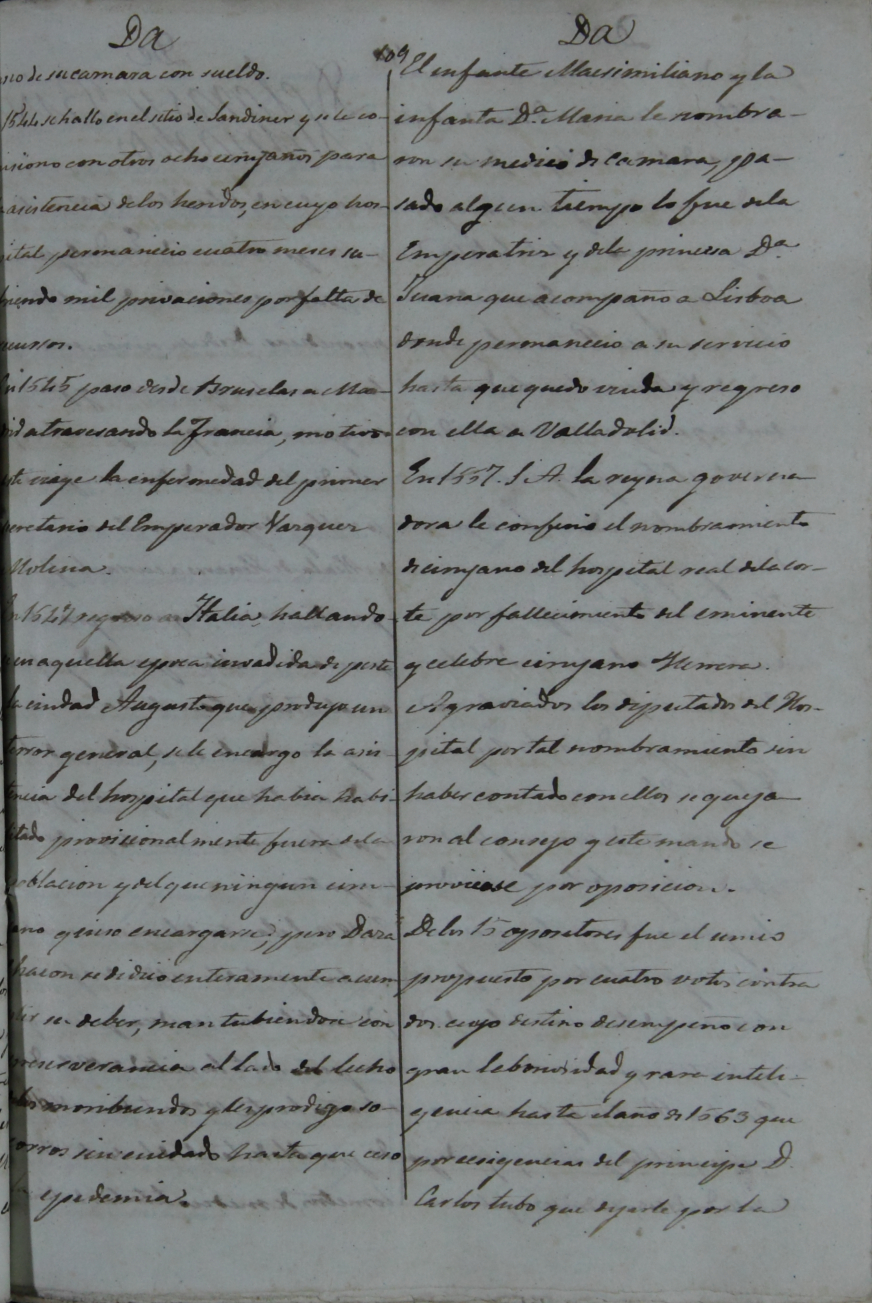 Da
no de su camara con sueldo.
1544 se hallo en el sitio de Sandiner y se le co-
misiono con otros ocho cirujanos para
asistencia de los heridos, en cuyo hos-
pital permanecio cuatro meses su-
friendo mil privaciones por falta de
recursos.
En 1545 paso desde Bruselas a Ma-
drid atravesando la Francia, motivo
este viage la enfermedad del primer
secretario del Emperador Vazquez
Molina.
En 1547 regreso a Italia, hallando-
en aquella epoca invadida de peste
la ciudad Augusta que produjo un
terror general, se le encargo la asis-
tencia del hospital que habia habi-
litado provicionalmente fuera de la
poblacion y del que ningun ciru-
jano quiso encargarse; pero Daza
Chacon se dedico enteramente a cum-
plir su deber, mantubiendose con
perseverancia al lado del lecho
de los moribundos y les prodigo so-
corros sin cuidado hasta que ceso
la epidemia.
109
Da
El infante Maesimiliano y la
infanta Dª Maria le nombra-
ron su medico de camara, y pa-
sado algun tiempo lo fue de la
Emperatriz y de la princesa Dª
Juana que acompaño a Lisboa
donde permanecio a su servicio
hasta que quedo viuda y regreso
con ella a Valladolid.
En 1557. S. A. la reyna governa
dora le confirio el nombramiento
de cirujano del hospital real de la cor-
te por fallecimiento del eminente
y celebre cirujano Herrera.
Agraviados los diputados del Hos-
pital por tal nombramiento sin
haber contado con ellos se queja
ron al consejo y este mando se
proviese por oposicion.
De los 15 opositores fue el unico
propuesto por cuatro votos contra
dos cuyo destino desempeño con
gran laboriosidad y rara inteli-
gencia hasta el año de 1563 que
por ecsigencias del principe D.
Carlos tubo que dejarle por la